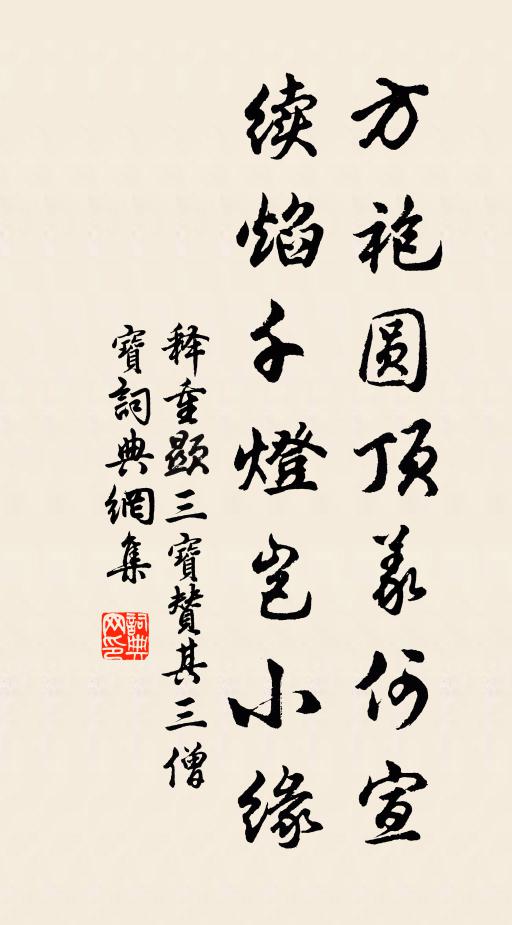 方袍圆顶义何宣
续焰千燈岂小缘
释重显三寶赞其三僧
寶詞典網集
詞典网印